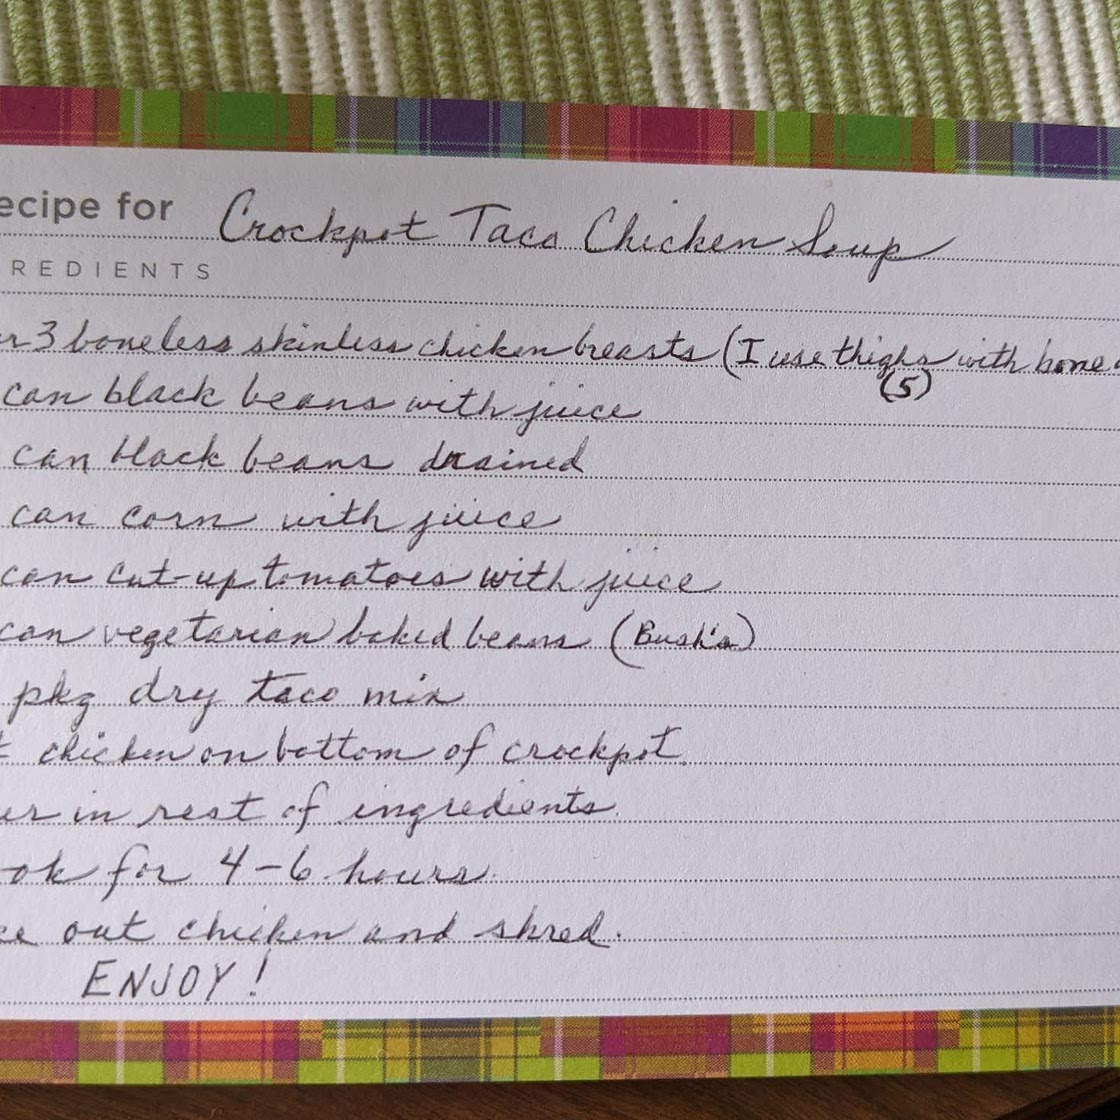 ecipe for Crockpot Taco Chicken Soup
REDIENTS
r 3 boneless skinless chicken breasts (I use thighs with bone
(5)
can black beans with juice
can black beans drained
can corn with juice
can cut-up tomatoes with juice
can vegetarian baked beans (Bush's)
pkg dry taco mix
t chicken on bottom of crockpot.
er in rest of ingredients.
ok for 4-6 hours.
ke out chicken and shred.
ENJOY!